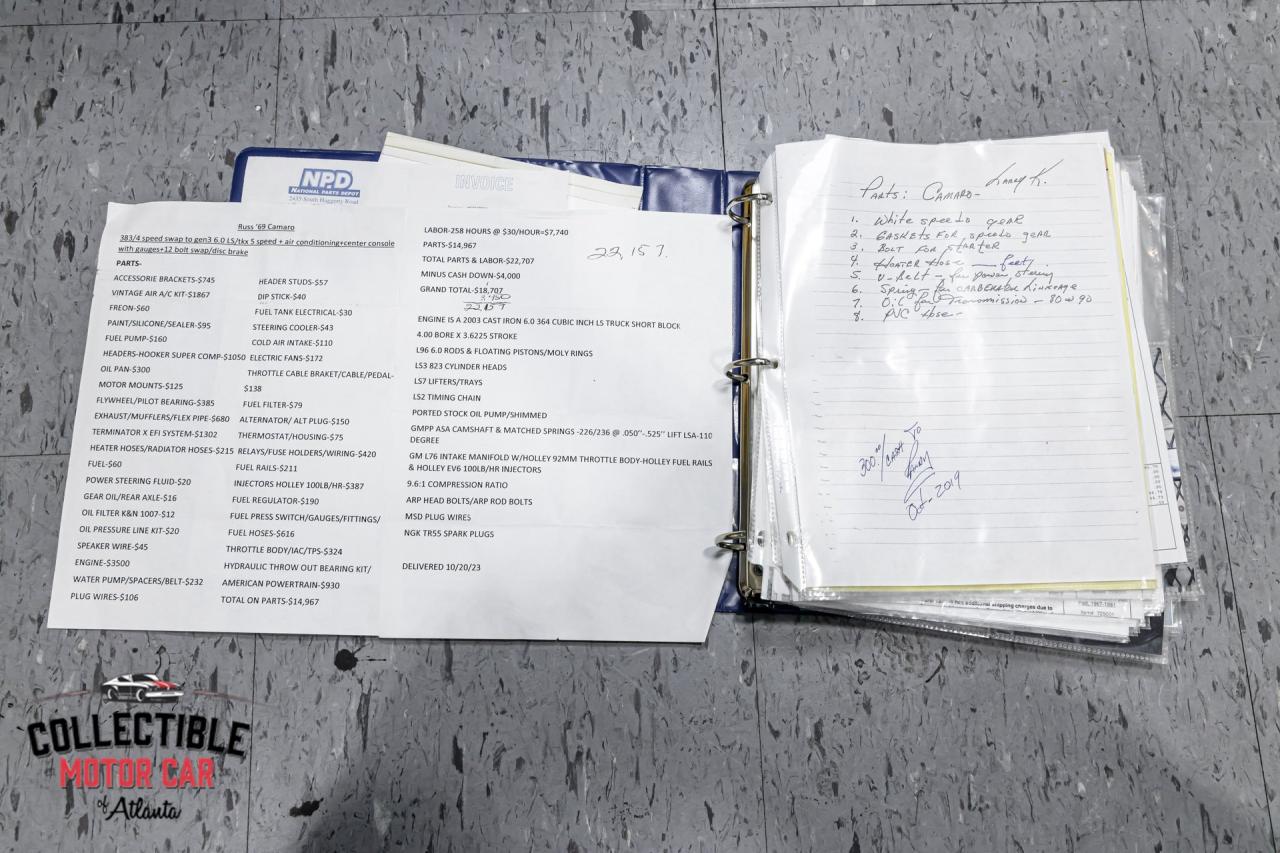 NPD
NATIONAL PARTS DEPOT
2435 South Haggerty Road
INVOICE
Russ '69 Camaro
383/4 speed swap to gen3 6.0 LS/tkx 5 speed + air conditioning+center console
with gauges+12 bolt swap/disc brake
PARTS-
ACCESSORIE BRACKETS-$745
VINTAGE AIR A/C KIT-$1867
FREON-$60
PAINT/SILICONE/SEALER-$95
FUEL PUMP-$160
HEADERS-HOOKER SUPER COMP-$1050
OIL PAN-$300
MOTOR MOUNTS-$125
FLYWHEEL/PILOT BEARING-$385
EXHAUST/MUFFLERS/FLEX PIPE-$680
TERMINATOR X EFI SYSTEM-$1302
HEATER HOSES/RADIATOR HOSES-$215
FUEL-$60
POWER STEERING FLUID-$20
GEAR OIL/REAR AXLE-$16
OIL FILTER K&N 1007-$12
OIL PRESSURE LINE KIT-$20
SPEAKER WIRE-$45
ENGINE-$3500
WATER PUMP/SPACERS/BELT-$232
PLUG WIRES-$106
HEADER STUDS-$57
DIP STICK-$40
FUEL TANK ELECTRICAL-$30
STEERING COOLER-$43
COLD AIR INTAKE-$110
ELECTRIC FANS-$172
THROTTLE CABLE BRAKET/CABLE/PEDAL-
$138
FUEL FILTER-$79
ALTERNATOR/ ALT PLUG-$150
THERMOSTAT/HOUSING-$75
RELAYS/FUSE HOLDERS/WIRING-$420
FUEL RAILS-$211
INJECTORS HOLLEY 100LB/HR-$387
FUEL REGULATOR-$190
FUEL PRESS SWITCH/GAUGES/FITTINGS/
FUEL HOSES-$616
THROTTLE BODY/IAC/TPS-$324
HYDRAULIC THROW OUT BEARING KIT/
AMERICAN POWERTRAIN-$930
TOTAL ON PARTS-$14,967
LABOR-258 HOURS @ $30/HOUR=$7,740
PARTS-$14,967
TOTAL PARTS & LABOR-$22,707
MINUS CASH DOWN-$4,000
GRAND TOTAL-$18,707
3,450
22,157
22,157.
ENGINE IS A 2003 CAST IRON 6.0 364 CUBIC INCH LS TRUCK SHORT BLOCK
4.00 BORE X 3.6225 STROKE
L96 6.0 RODS & FLOATING PISTONS/MOLY RINGS
LS3 823 CYLINDER HEADS
LS7 LIFTERS/TRAYS
LS2 TIMING CHAIN
PORTED STOCK OIL PUMP/SHIMMED
GMPP ASA CAMSHAFT & MATCHED SPRINGS -226/236 @ .050"-.525" LIFT LSA-110
DEGREE
GM L76 INTAKE MANIFOLD W/HOLLEY 92MM THROTTLE BODY-HOLLEY FUEL RAILS
& HOLLEY EV6 100LB/HR INJECTORS
9.6:1 COMPRESSION RATIO
ARP HEAD BOLTS/ARP ROD BOLTS
MSD PLUG WIRES
NGK TR55 SPARK PLUGS
DELIVERED 10/20/23
PARTS: CAMARO- Larry K.
1. White speedo gear
2. GASKETS FOR speedo gear
3. BOLT FOR starter
4. HEATER HOSE feet
5. V-Belt - for power steering
6. Spring - for CARBERATOR Linkeage
7. Oil for Transmission - 80 W 90
8. PVC Hose-
300.00 CASH TO
Larry
Oct. 2019
COLLECTIBLE
MOTOR CAR
of Atlanta